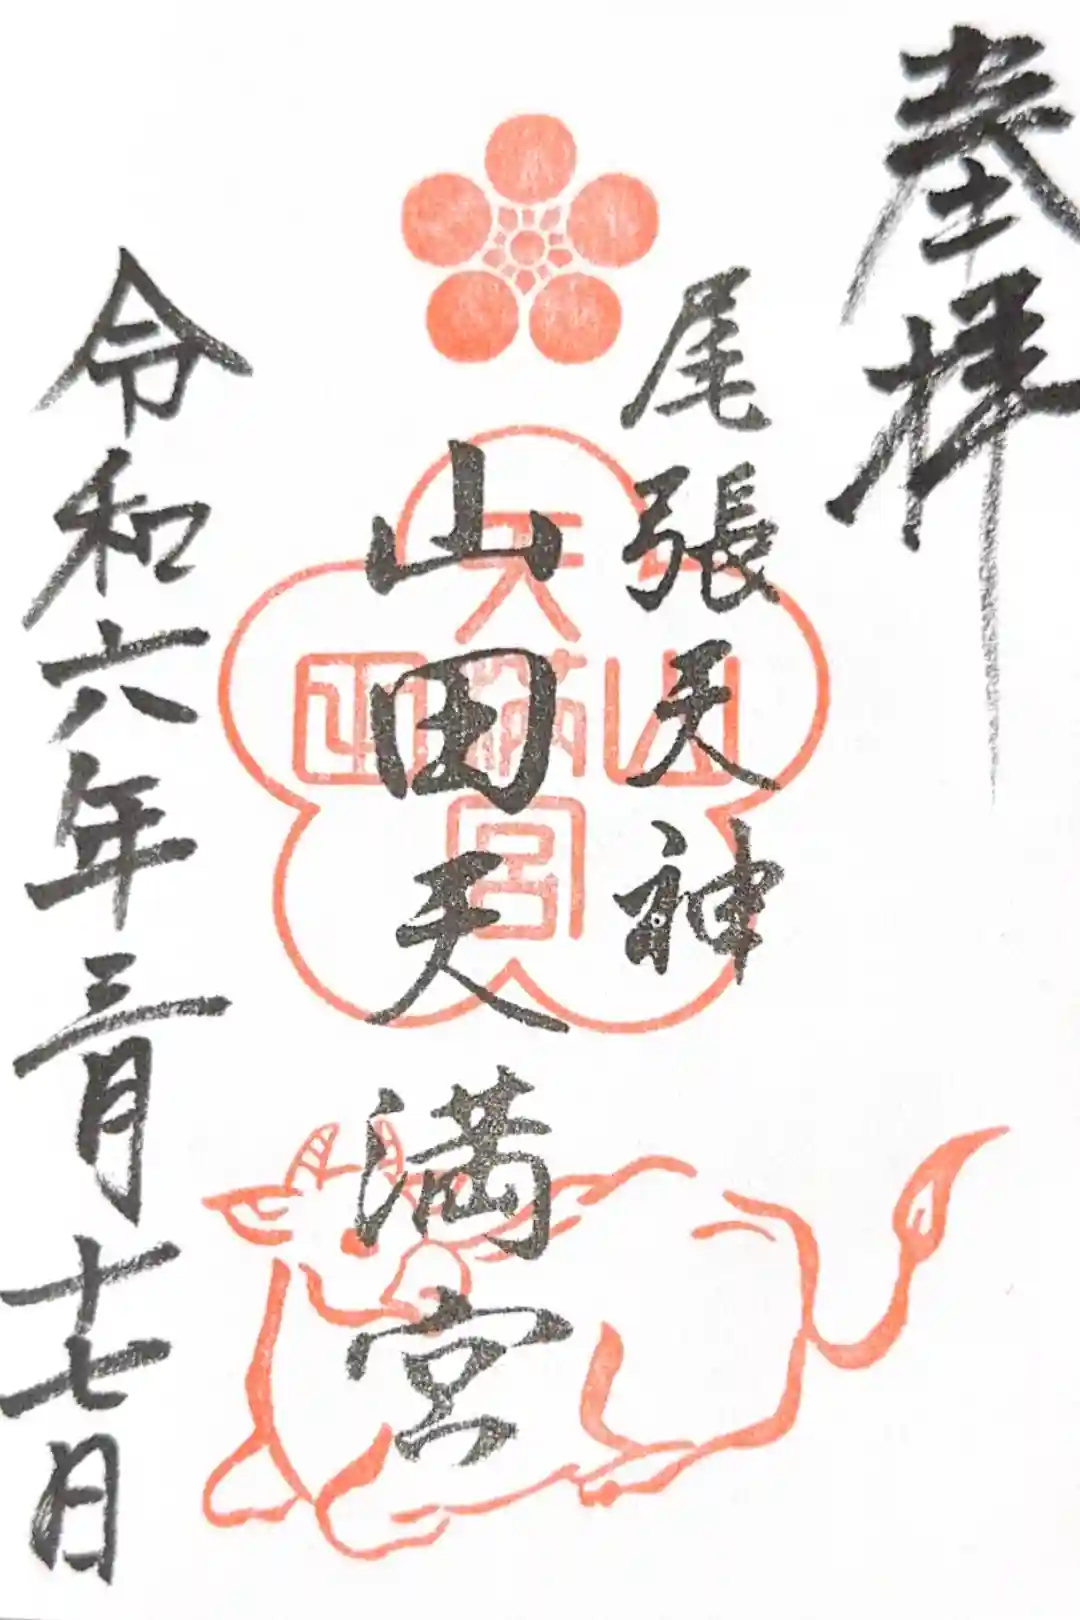 奉拝
尾張天神
山田天満宮
令和六年三月十七日
天
山満田
宮